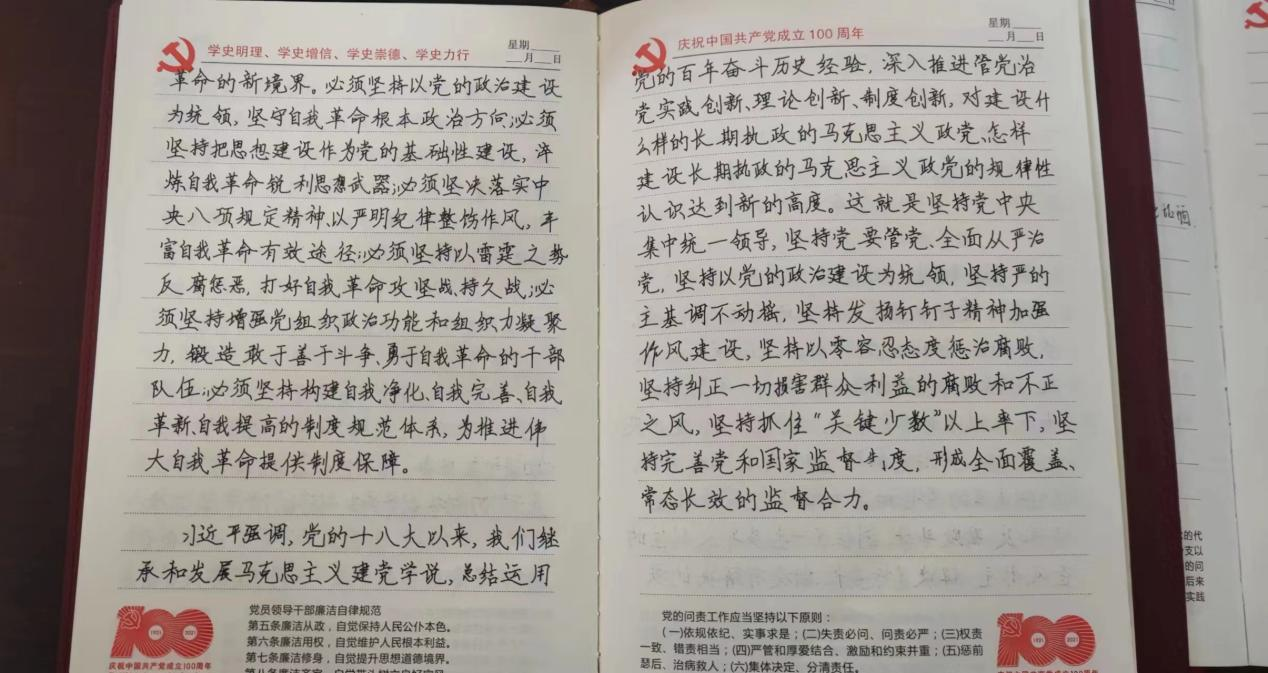 学史明理、学史增信、学史崇德、学史力行
星期
月 日
革命的新境界。必须坚持以党的政治建设
为统领，坚守自我革命根本政治方向；必须
坚持把思想建设作为党的基础性建设，淬
炼自我革命锐利思想武器；必须坚决落实中
央八项规定精神、以严明纪律整饬作风，丰
富自我革命有效途径；必须坚持以雷霆之势
反腐惩恶，打好自我革命攻坚战、持久战；必
须坚持增强党组织政治功能和组织力凝聚
力，锻造敢于善于斗争、勇于自我革命的干部
队伍；必须坚持构建自我净化、自我完善、自我
革新、自我提高的制度规范体系，为推进伟
大自我革命提供制度保障。
习近平强调，党的十八大以来，我们继
承和发展马克思主义建党学说，总结运用
100
1921 2021
庆祝中国共产党成立100周年
党员领导干部廉洁自律规范
第五条廉洁从政，自觉保持人民公仆本色。
第六条廉洁用权，自觉维护人民根本利益。
第七条廉洁修身，自觉提升思想道德境界。
庆祝中国共产党成立100周年
星期
月 日
党的百年奋斗历史经验，深入推进管党治
党实践创新、理论创新、制度创新，对建设什
么样的长期执政的马克思主义政党、怎样
建设长期执政的马克思主义政党的规律性
认识达到新的高度。这就是坚持党中央
集中统一领导，坚持党要管党、全面从严治
党，坚持以党的政治建设为统领，坚持严的
主基调不动摇，坚持发扬钉钉子精神加强
作风建设，坚持以零容忍态度惩治腐败，
坚持纠正一切损害群众利益的腐败和不正
之风，坚持抓住“关键少数”以上率下，坚
持完善党和国家监督制度，形成全面覆盖、
常态长效的监督合力。
党的问责工作应当坚持以下原则：
(一)依规依纪、实事求是；(二)失责必问、问责必严；(三)权责
一致、错责相当；(四)严管和厚爱结合、激励和约束并重；(五)惩前
毖后、治病救人；(六)集体决定、分清责任。
100
1921 2021
的代
支以
的问
后来
实践